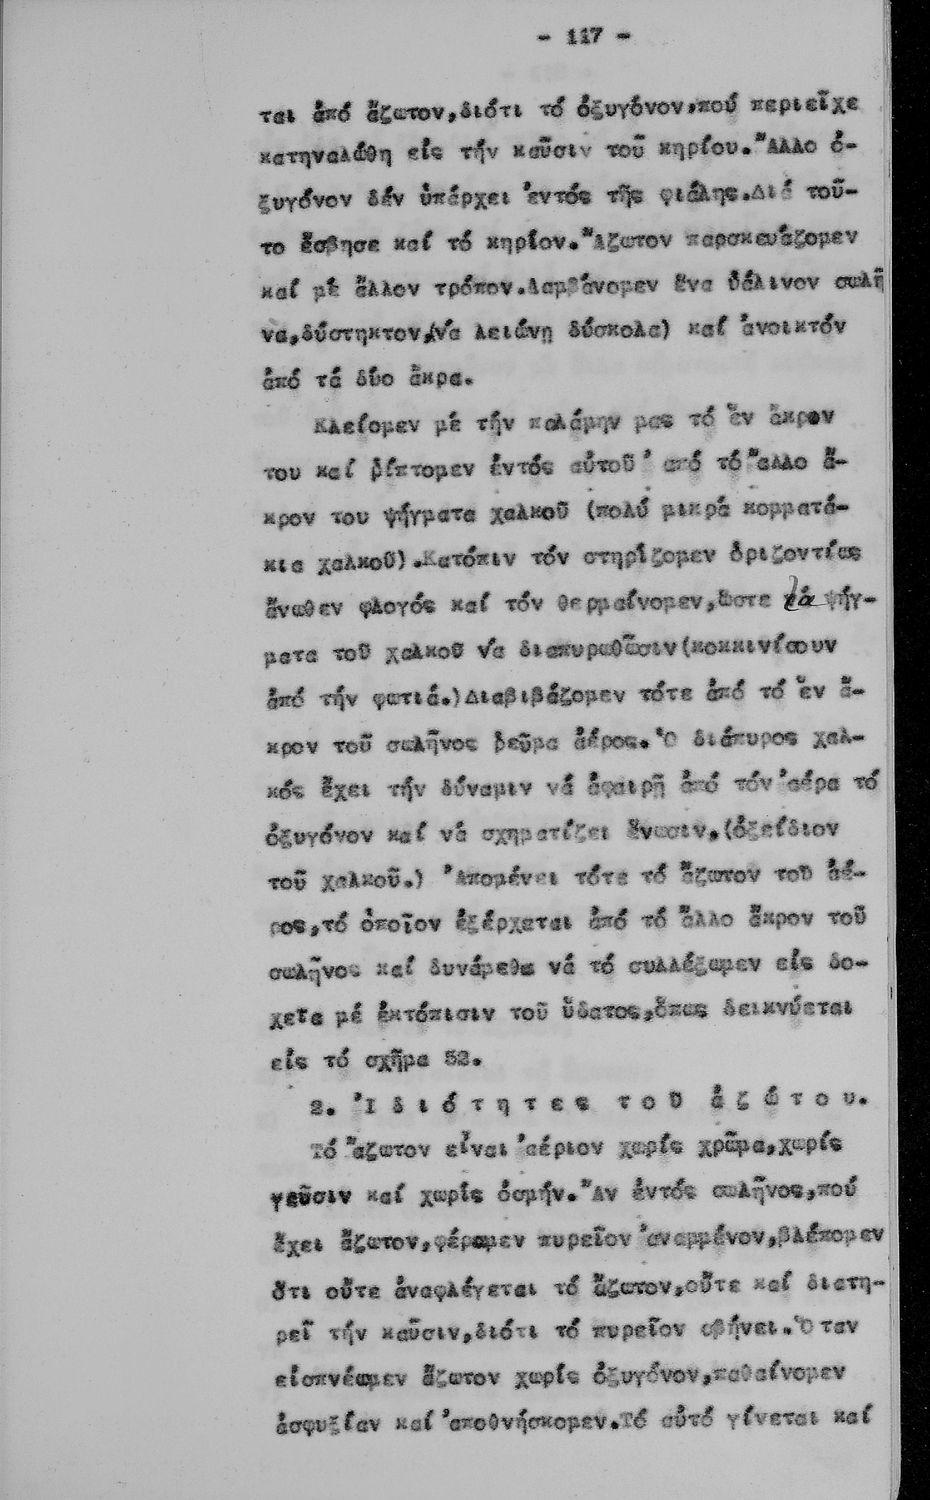 - 117 -
ται ἀπό ἄζωτον,διότι τό ὀξυγόνον,πού περιεῖχε
κατηναλώθη εἰς τήν καῦσιν τοῦ κηρίου.Ἄλλο ὀ-
ξυγόνον δέν ὑπάρχει ἐντός τῆς φιάλης.Διά τοῦ-
το ἔσβησε καί τό κηρίον.Ἄζωτον παρασκευάζομεν
καί μέ ἄλλον τρόπον.Λαμβάνομεν ἕνα ὑάλινον σωλῆ
να,δύστηκτον,(νά λειώνῃ δύσκολα) καί ἀνοικτόν
ἀπό τά δύο ἄκρα.
Κλείομεν μέ τήν παλάμην μας τό ἕν ἄκρον
του καί ρίπτομεν ἐντός αὐτοῦ ἀπό τό ἄλλο ἄ-
κρον του ψήγματα χαλκοῦ (πολύ μικρά κομματά-
κια χαλκοῦ).Κατόπιν τόν στηρίζομεν ὁριζοντίως
ἄνωθεν φλογός καί τόν θερμαίνομεν,ὥστε τά ψήγ-
ματα τοῦ χαλκοῦ νά διαπυρωθῶσιν(κοκκινίσουν
ἀπό τήν φωτιά.)Διαβιβάζομεν τότε ἀπό τό ἕν ἄ-
κρον τοῦ σωλῆνος ρεῦμα ἀέρος.Ὁ διάπυρος χαλ-
κός ἔχει τήν δύναμιν νά ἀφαιρῇ ἀπό τόν ἀέρα τό
ὀξυγόνον καί νά σχηματίζει ἕνωσιν,(ὀξείδιον
τοῦ χαλκοῦ.) Ἀπομένει τότε τό ἄζωτον τοῦ ἀέ-
ρος,τό ὁποῖον ἐξέρχεται ἀπό τό ἄλλο ἄκρον τοῦ
σωλῆνος καί δυνάμεθα νά τό συλλέξωμεν εἰς δο-
χεῖα μέ ἐκτόπισιν τοῦ ὕδατος,ὅπως δεικνύεται
εἰς τό σχῆμα 52.
2. Ἰ δ ι ό τ η τ ε ς τ ο ῦ ἀ ζ ώ τ ο υ.
Τό ἄζωτον εἶναι ἀέριον χωρίς χρῶμα,χωρίς
γεῦσιν καί χωρίς ὀσμήν.Ἄν ἐντός σωλῆνος,πού
ἔχει ἄζωτον,φέρωμεν πυρεῖον ἀναμμένον,βλέπομεν
ὅτι οὔτε ἀναφλέγεται τό ἄζωτον,οὔτε καί διατη-
ρεῖ τήν καῦσιν,διότι τό πυρεῖον σβήνει.Ὅταν
εἰσπνέωμεν ἄζωτον χωρίς ὀξυγόνον,παθαίνομεν
ἀσφυξίαν καί ἀποθνήσκομεν.Τό αὐτό γίνεται καί